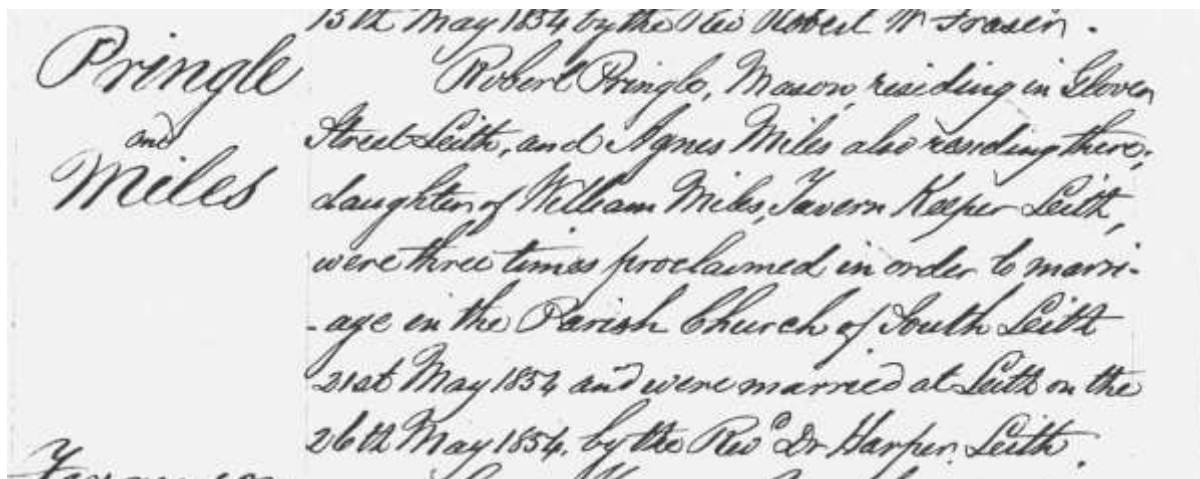 15th May 1854 by the Rev Robert W Fraser.
Pringle
and
Miles
Robert Pringle, Mason, residing in Glover
Street Leith, and Agnes Miles also residing there,
daughter of William Miles, Tavern Keeper Leith,
were three times proclaimed in order to marri-
-age in the Parish Church of South Leith
21st May 1854 and were married at Leith on the
26th May 1854, by the Revd Dr Harper, Leith.